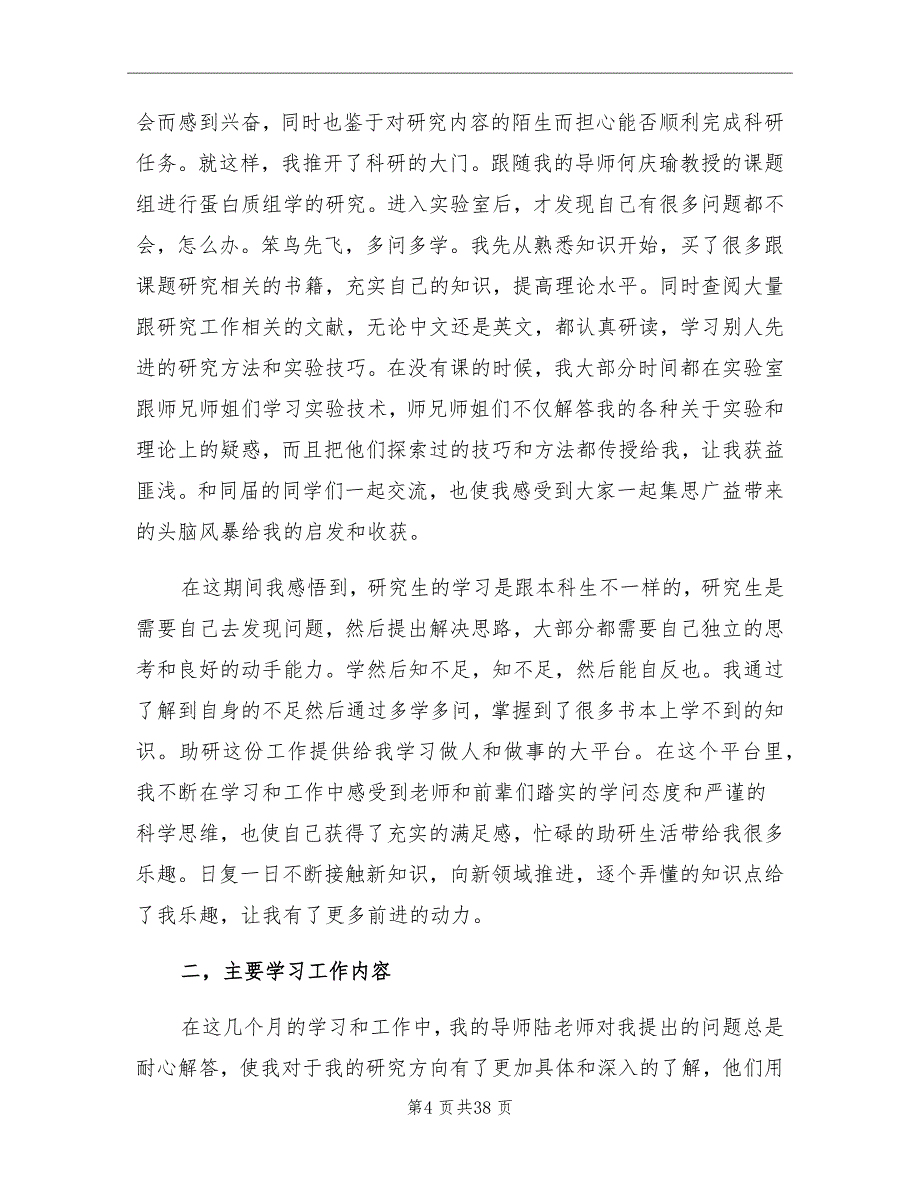 会而感到兴奋，同时也鉴于对研究内容的陌生而担心能否顺利完成科研
任务。就这样，我推开了科研的大门。跟随我的导师何庆瑜教授的课题
组进行蛋白质组学的研究。进入实验室后，才发现自己有很多问题都不
会，怎么办。笨鸟先飞，多问多学。我先从熟悉知识开始，买了很多跟
课题研究相关的书籍，充实自己的知识，提高理论水平。同时查阅大量
跟研究工作相关的文献，无论中文还是英文，都认真研读，学习别人先
进的研究方法和实验技巧。在没有课的时候，我大部分时间都在实验室
跟师兄师姐们学习实验技术，师兄师姐们不仅解答我的各种关于实验和
理论上的疑惑，而且把他们探索过的技巧和方法都传授给我，让我获益
匪浅。和同届的同学们一起交流，也使我感受到大家一起集思广益带来
的头脑风暴给我的启发和收获。
在这期间我感悟到，研究生的学习是跟本科生不一样的，研究生是
需要自己去发现问题，然后提出解决思路，大部分都需要自己独立的思
考和良好的动手能力。学然后知不足，知不足，然后能自反也。我通过
了解到自身的不足然后通过多学多问，掌握到了很多书本上学不到的知
识。助研这份工作提供给我学习做人和做事的大平台。在这个平台里，
我不断在学习和工作中感受到老师和前辈们踏实的学问态度和严谨的
科学思维，也使自己获得了充实的满足感，忙碌的助研生活带给我很多
乐趣。日复一日不断接触新知识，向新领域推进，逐个弄懂的知识点给
了我乐趣，让我有了更多前进的动力。
二，主要学习工作内容
在这几个月的学习和工作中，我的导师陆老师对我提出的问题总是
耐心解答，使我对于我的研究方向有了更加具体和深入的了解，他们用
第4 页共38 页